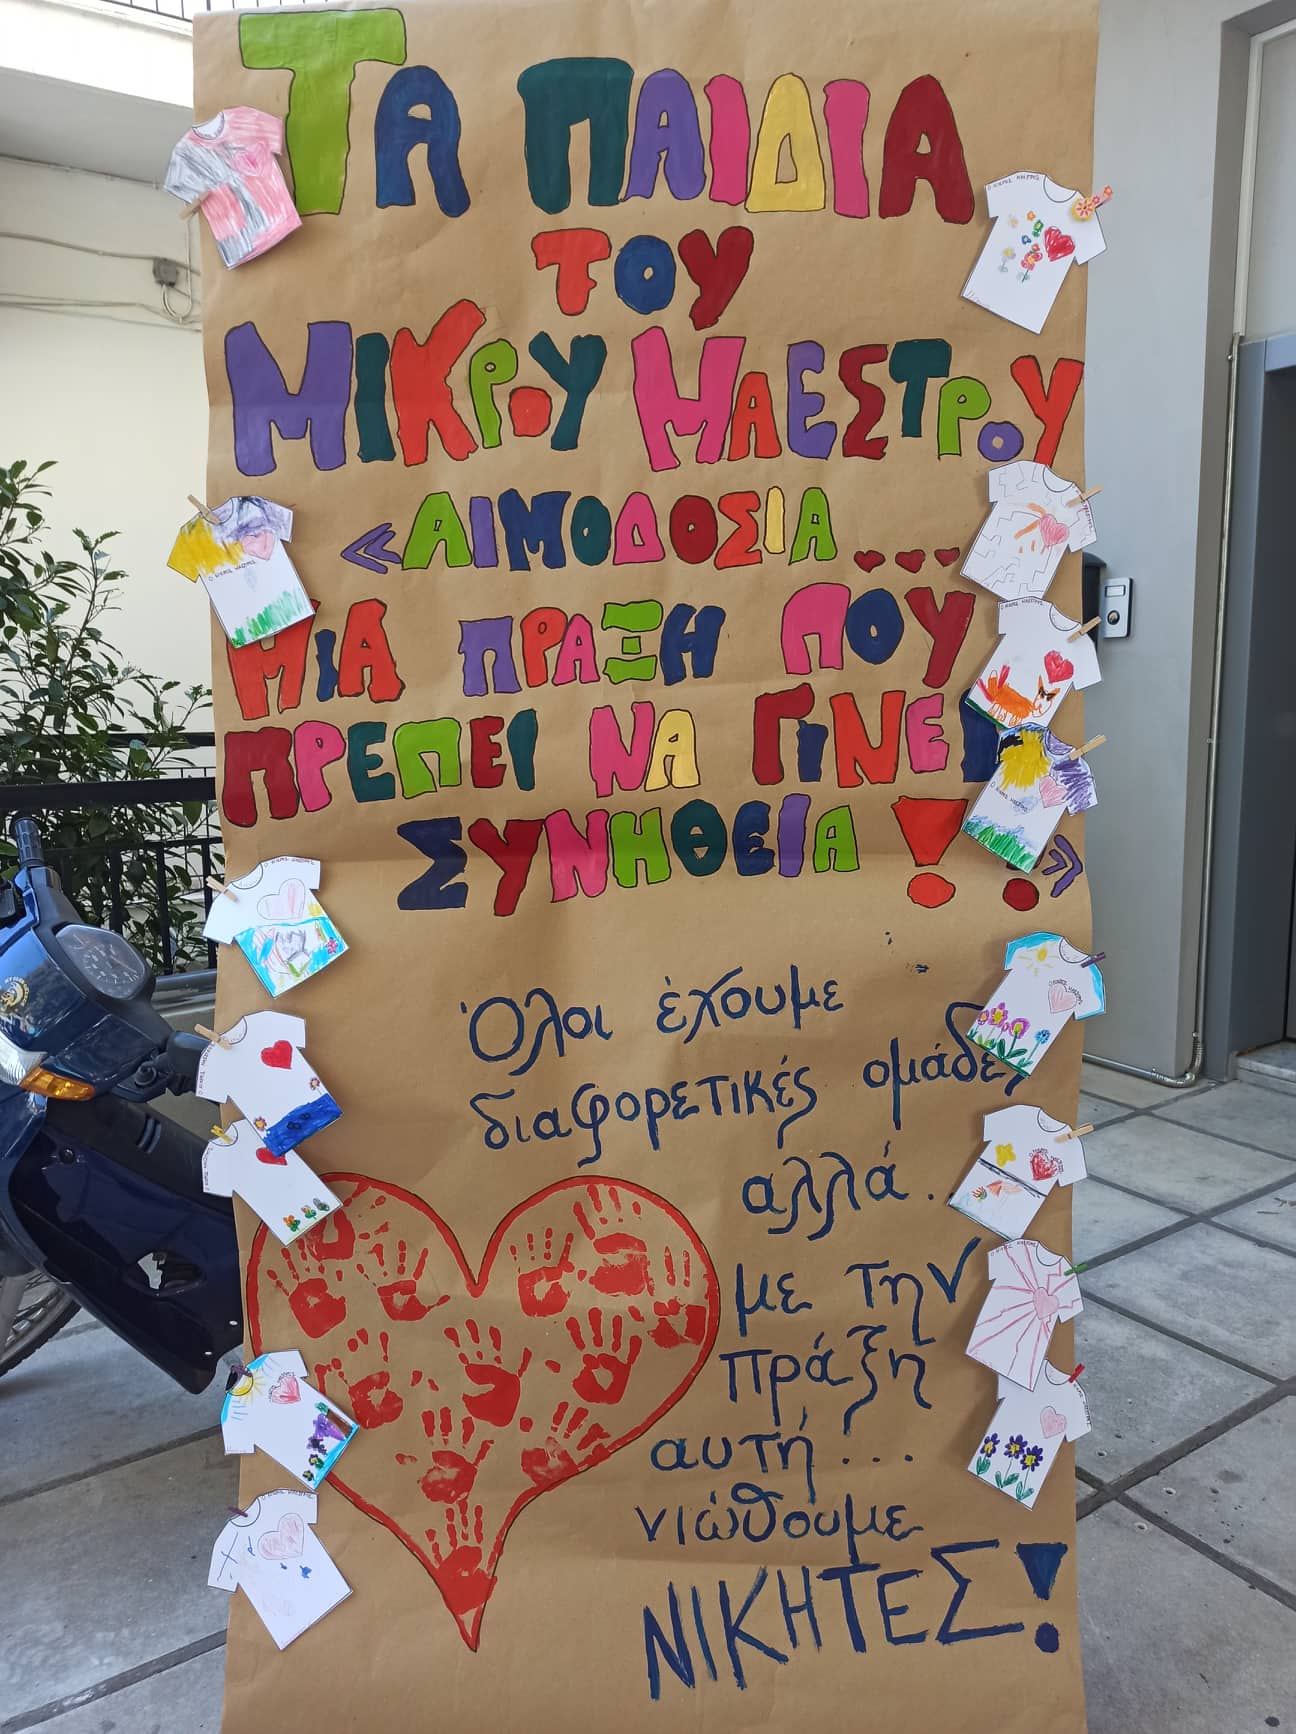 ΤΑ ΠΑΙΔΙΑ
ΤΟΥ
ΜΙΚΡΟΥ ΜΑΕΣΤΡΟΥ
«ΑΙΜΟΔΟΣΙΑ...
ΜΙΑ ΠΡΑΞΗ ΠΟΥ
ΠΡΕΠΕΙ ΝΑ ΓΙΝΕΙ
ΣΥΝΗΘΕΙΑ!!»
Όλοι έχουμε
διαφορετικές ομάδες
αλλά.
με την
πράξη
αυτή...
νιώθουμε
ΝΙΚΗΤΕΣ!